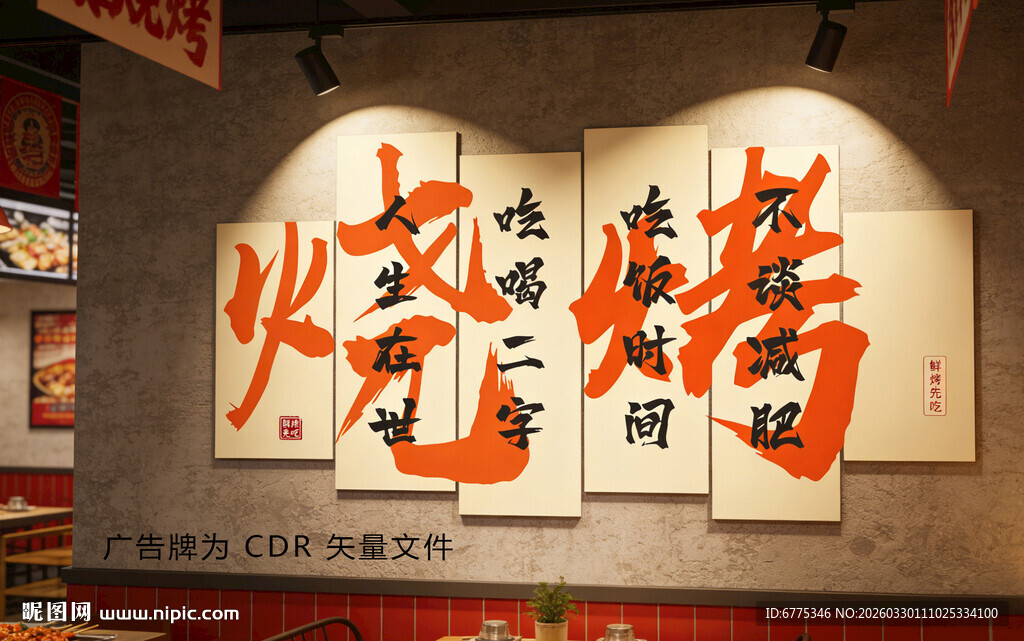 烧烤
烧烤
人生在世
吃喝二字
吃饭时间
不谈减肥
鲜烤先吃
广告牌为 CDR 矢量文件
昵图网 www.nipic.com
ID:6775346 NO:20260330111025334100